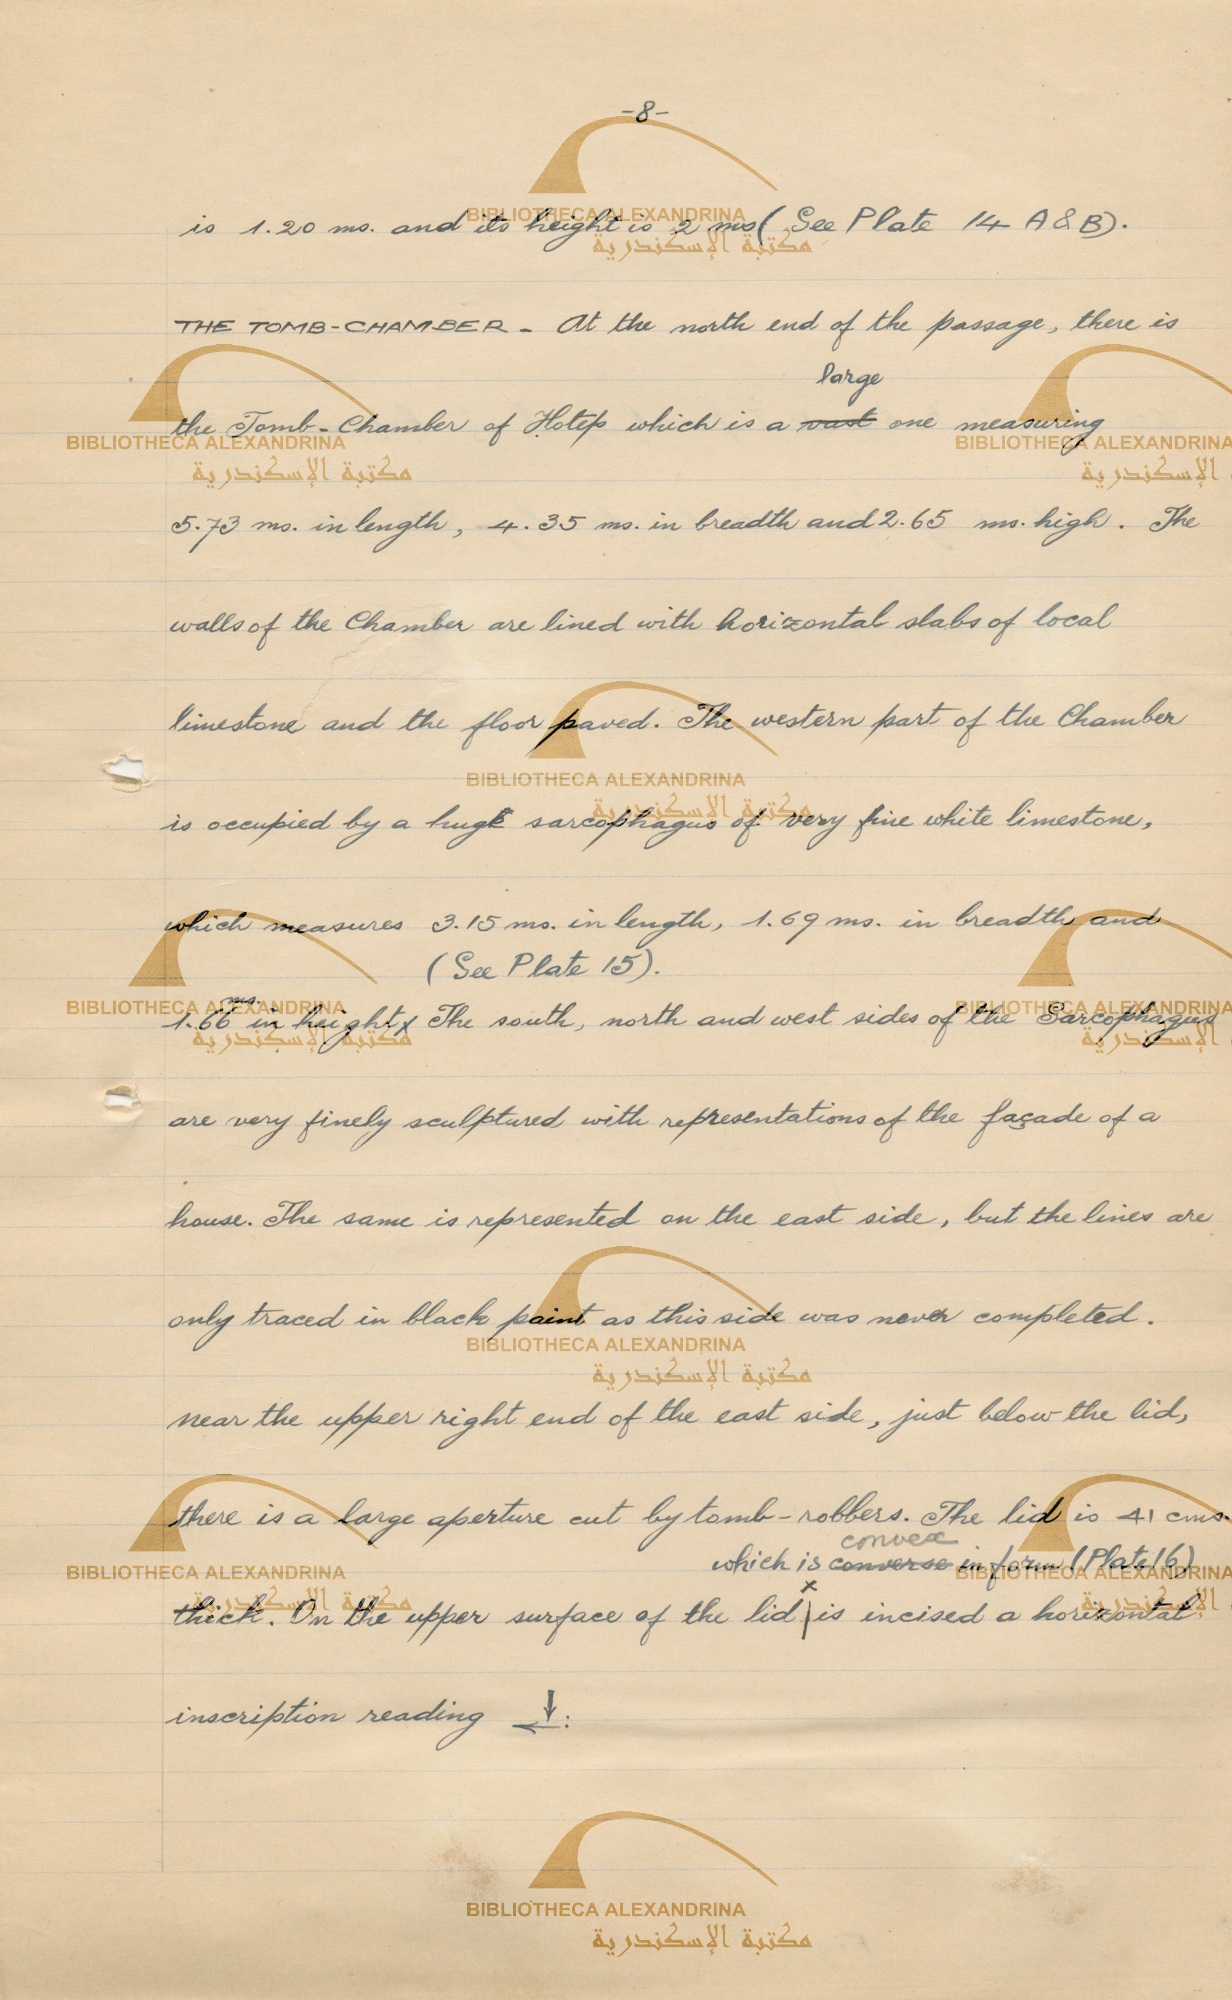 -8-
is 1.20 ms. and its height is 2 ms (See Plate 14 A & B).
THE TOMB-CHAMBER - At the north end of the passage, there is
large
the Tomb-Chamber of Hotep which is a vast one measuring
5.73 ms. in length, 4.35 ms. in breadth and 2.65 ms. high. The
walls of the Chamber are lined with horizontal slabs of local
limestone and the floor paved. The western part of the Chamber
is occupied by a huge sarcophagus of very fine white limestone,
which measures 3.15 ms. in length, 1.69 ms. in breadth and
(See Plate 15).
ms.
1.66 in height x The south, north and west sides of the Sarcophagus
are very finely sculptured with representations of the façade of a
house. The same is represented on the east side, but the lines are
only traced in black paint as this side was never completed.
near the upper right end of the east side, just below the lid,
there is a large aperture cut by tomb-robbers. The lid is 41 cms.
convex
which is converse in form (Plate 16)
x
thick. On the upper surface of the lid | is incised a horizontal
inscription reading ↓←:
BIBLIOTHECA ALEXANDRINA
مكتبة الإسكندرية
BIBLIOTHECA ALEXANDRINA
مكتبة الإسكندرية
BIBLIOTHECA ALEXANDRINA
مكتبة الإ
BIBLIOTHECA ALEXANDRINA
مكتبة الإسكندرية
BIBLIOTHECA ALEXANDRINA
مكتبة الإسكندرية
BIBLIOTHECA ALEXANDRINA
مكتبة الإ
BIBLIOTHECA ALEXANDRINA
مكتبة الإسكندرية
BIBLIOTHECA ALEXANDRINA
مكتبة الإسكندرية
BIBLIOTHECA ALEXANDRINA
مكتبة الإ
BIBLIOTHECA ALEXANDRINA
مكتبة الإسكندرية